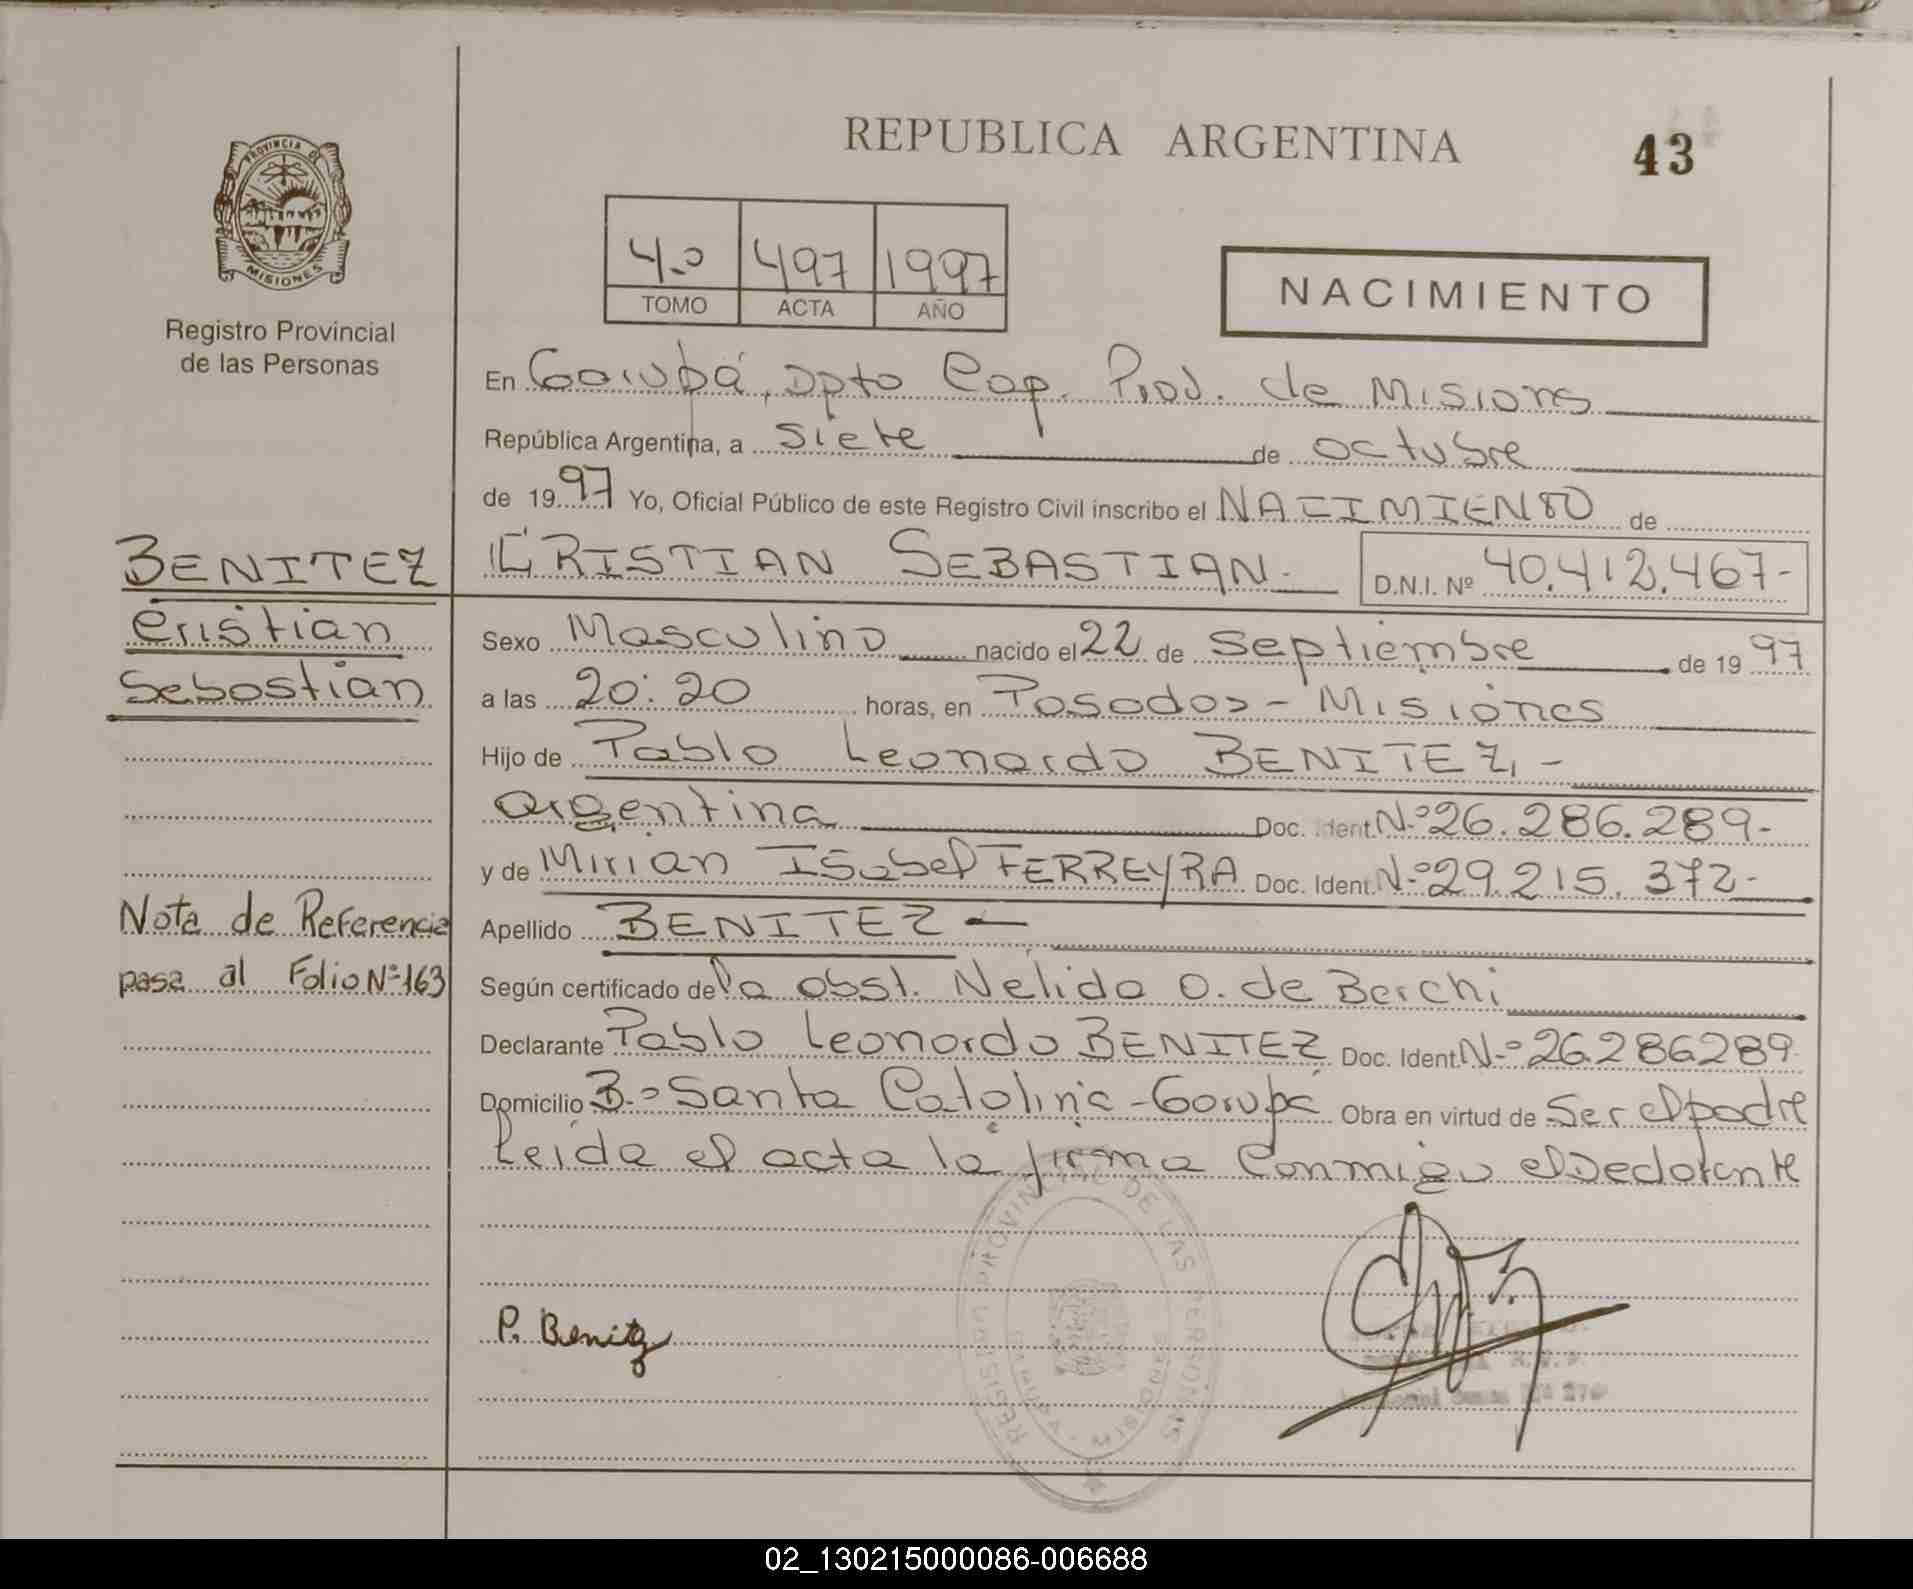 REPUBLICA ARGENTINA
43
PROVINCIA DE
MISIONES
Registro Provincial
de las Personas
4.º 497 1997
TOMO ACTA AÑO
NACIMIENTO
En Garupá, Dpto Cap. Prov. de Misiones
República Argentina, a siete de octubre
de 1997 Yo, Oficial Público de este Registro Civil inscribo el NACIMIENTO de
CRISTIAN SEBASTIAN.- D.N.I. Nº 40.412.467-
BENITEZ
Cristian
Sebastian
Sexo Masculino nacido el 22 de septiembre de 1997
a las 20:20 horas, en Posadas - Misiones
Hijo de Pablo Leonardo BENITEZ, -
argentina Doc. Ident. N.º 26.286.289-
y de Mirian Isabel FERREYRA Doc. Ident. N.º 29.215.372-
Nota de Referencia
pasa al Folio Nº 163
Apellido BENITEZ -
Según certificado de la obst. Nélida O. de Berchi
Declarante Pablo Leonardo BENITEZ Doc. Ident. N.º 26286289
Domicilio B.º Santa Catalina - Garupá Obra en virtud de Ser el padre
Leída el acta la firma conmigo el Declarante
P. Benitez
REGISTRO PROVINCIAL DE LAS PERSONAS
GARUPA - MISIONES
02_130215000086-006688